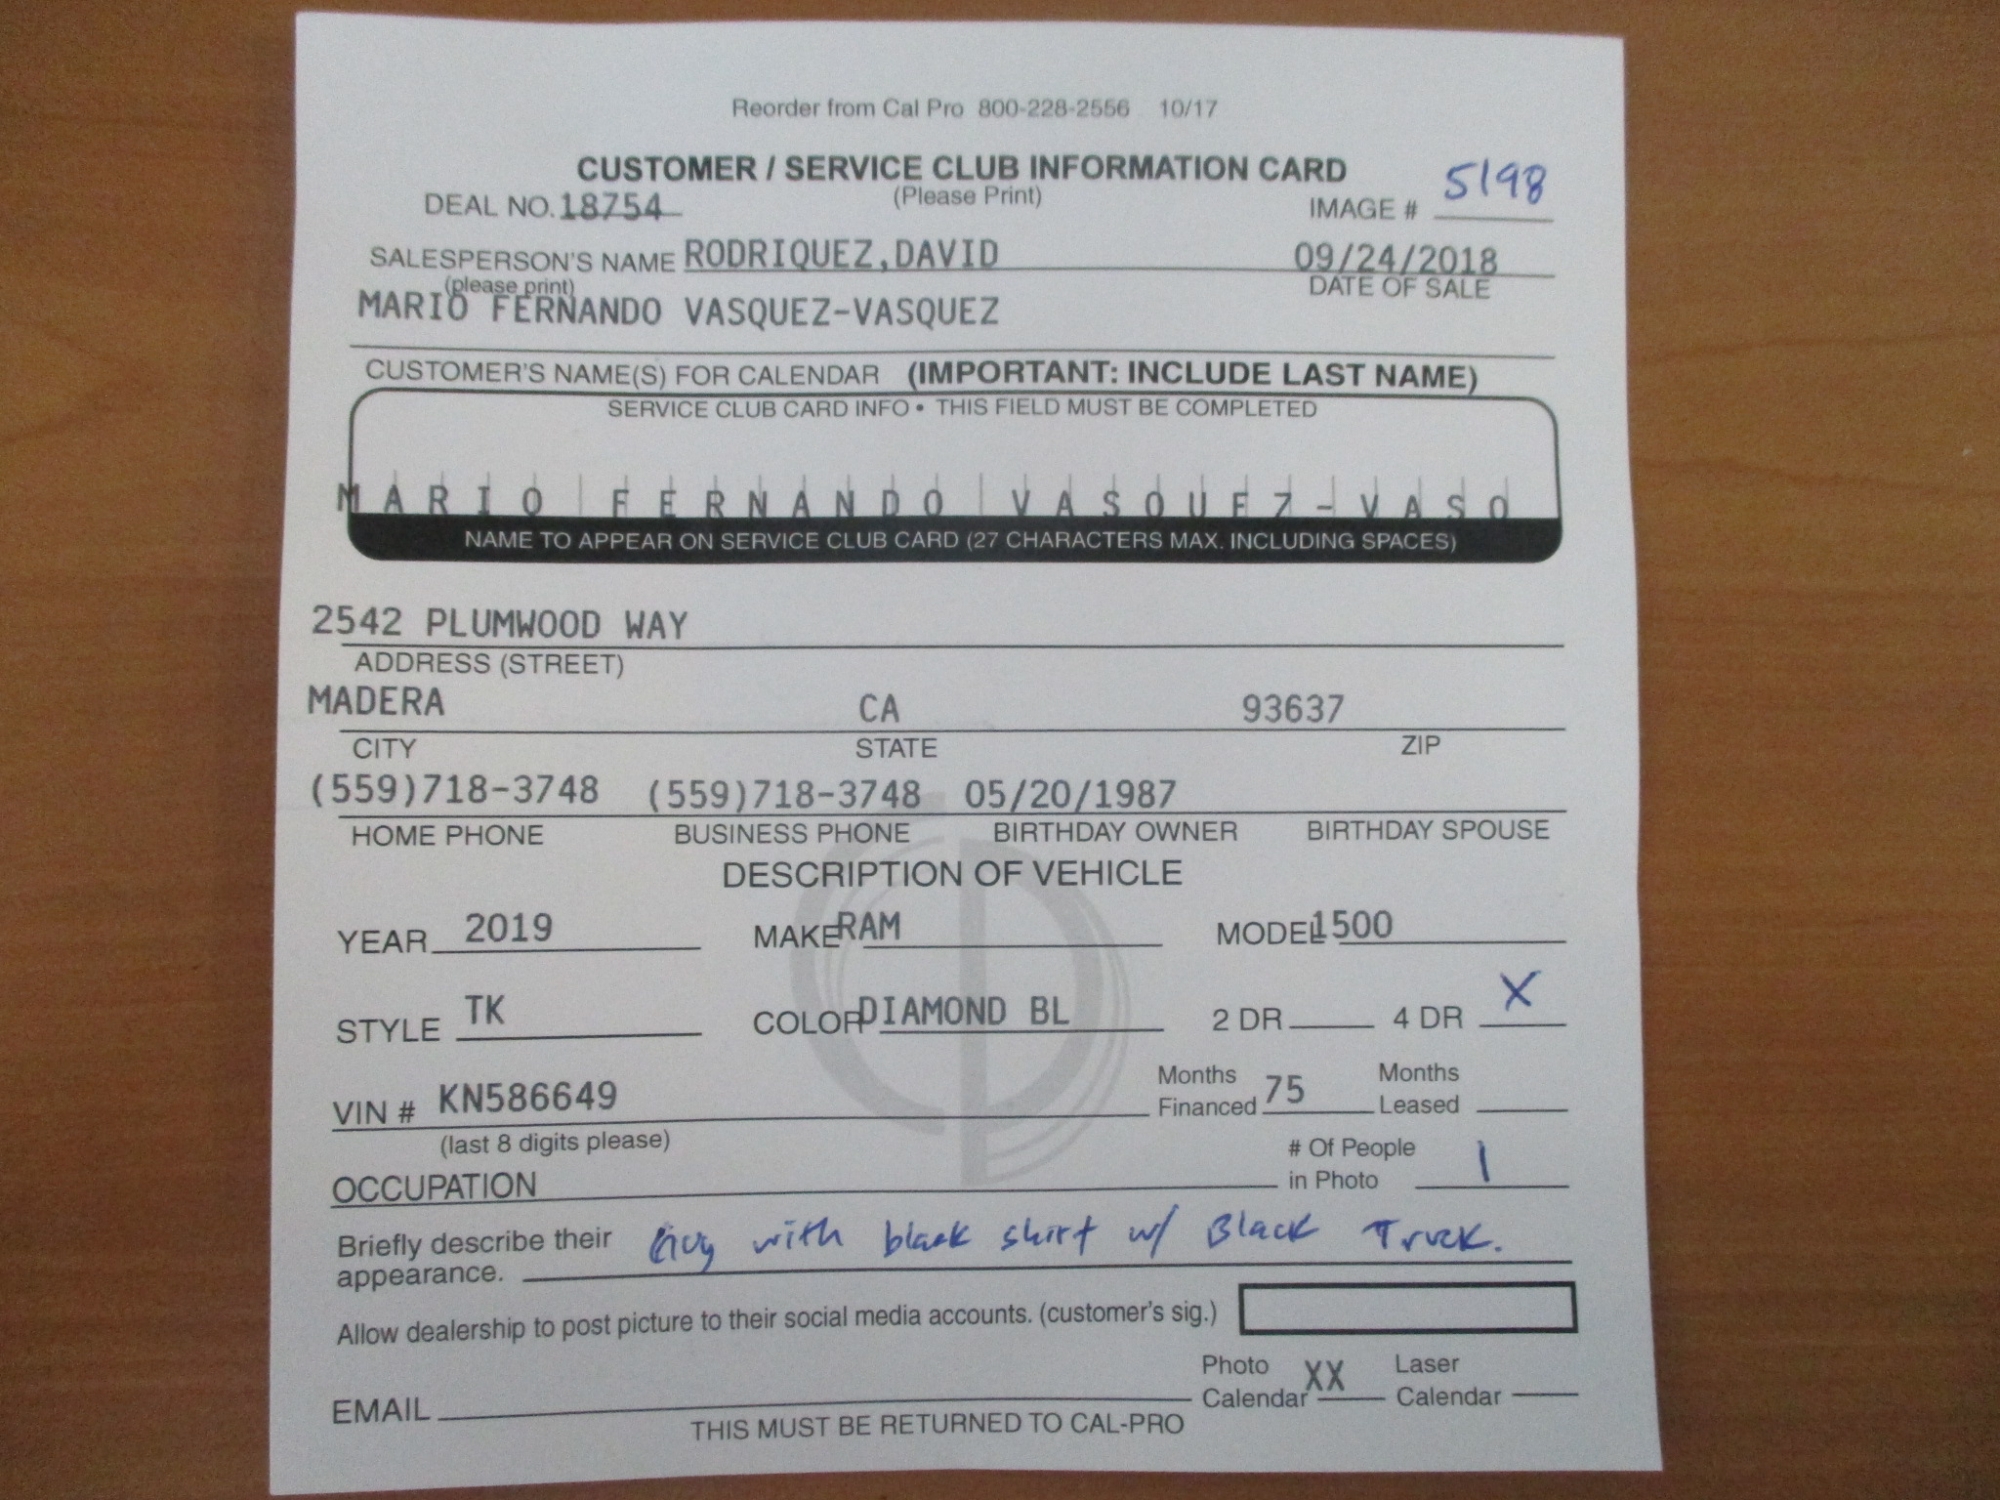 Reorder from Cal Pro 800-228-2556 10/17
CUSTOMER / SERVICE CLUB INFORMATION CARD
(Please Print)
DEAL NO. 18754 IMAGE # 5198
SALESPERSON'S NAME RODRIQUEZ,DAVID 09/24/2018
(please print) DATE OF SALE
MARIO FERNANDO VASQUEZ-VASQUEZ
CUSTOMER'S NAME(S) FOR CALENDAR (IMPORTANT: INCLUDE LAST NAME)
SERVICE CLUB CARD INFO • THIS FIELD MUST BE COMPLETED
MARIO FERNANDO VASQUEZ-VASQ
NAME TO APPEAR ON SERVICE CLUB CARD (27 CHARACTERS MAX. INCLUDING SPACES)
2542 PLUMWOOD WAY
ADDRESS (STREET)
MADERA CA 93637
CITY STATE ZIP
(559)718-3748 (559)718-3748 05/20/1987
HOME PHONE BUSINESS PHONE BIRTHDAY OWNER BIRTHDAY SPOUSE
DESCRIPTION OF VEHICLE
YEAR 2019 MAKE RAM MODEL 1500
STYLE TK COLOR DIAMOND BL 2 DR 4 DR X
VIN # KN586649 Months Financed 75 Months Leased
(last 8 digits please)
OCCUPATION # Of People in Photo 1
Briefly describe their appearance. Guy with black shirt w/ Black Truck.
Allow dealership to post picture to their social media accounts. (customer's sig.)
EMAIL Photo Calendar XX Laser Calendar
THIS MUST BE RETURNED TO CAL-PRO